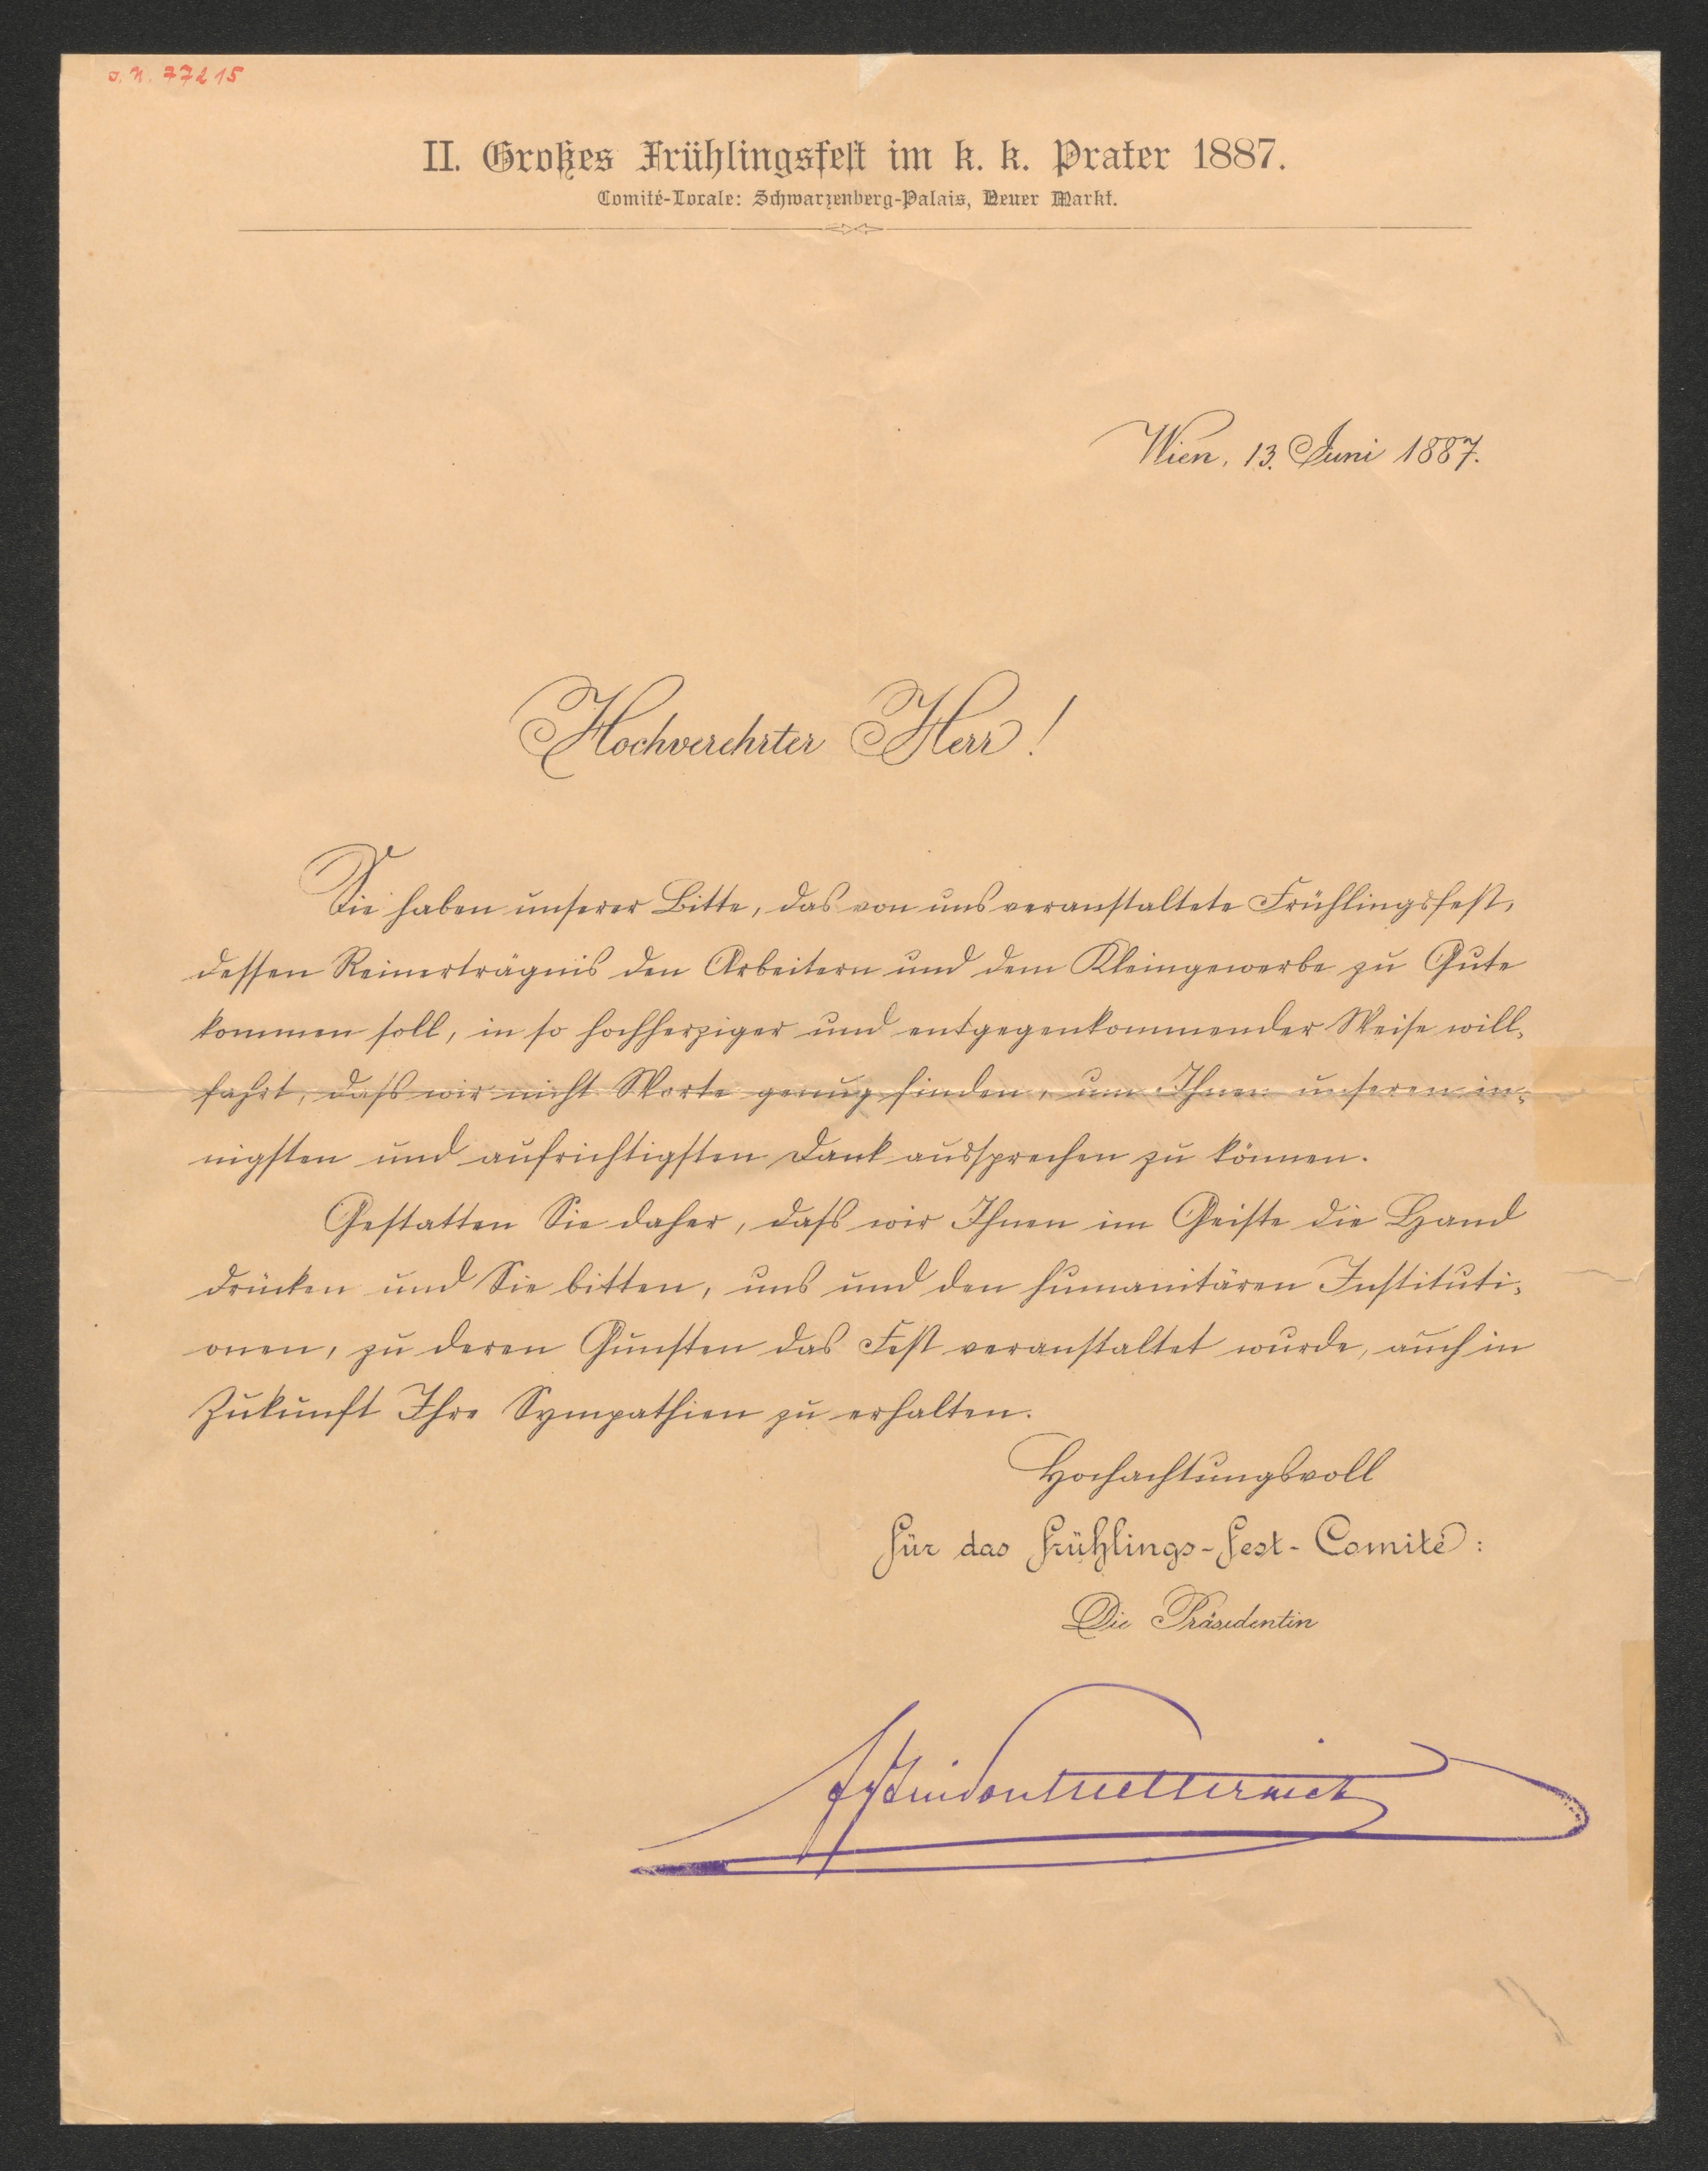 J. N. 77215
II. Großes Frühlingsfest im k. k. Prater 1887.
Comité-Locale: Schwarzenberg-Palais, Neuer Markt.
Wien, 13. Juni 1887.
Hochverehrter Herr!
Sie haben unserer Bitte, das von uns veranstaltete Frühlingsfest,
dessen Reinerträgnis den Arbeitern und dem Kleingewerbe zu Gute
kommen soll, in so hochherziger und entgegenkommender Weise will-
fahrt, dass wir nicht Worte genug finden, um Ihnen unseren in-
nigsten und aufrichtigsten Dank aussprechen zu können.
Gestatten Sie daher, dass wir Ihnen im Geiste die Hand
drücken und Sie bitten, uns und den humanitären Instituti-
onen, zu deren Gunsten das Fest veranstaltet wurde, auch in
Zukunft Ihre Sympathien zu erhalten.
Hochachtungsvoll
für das Frühlings-Fest-Comité:
Die Präsidentin
Metternich